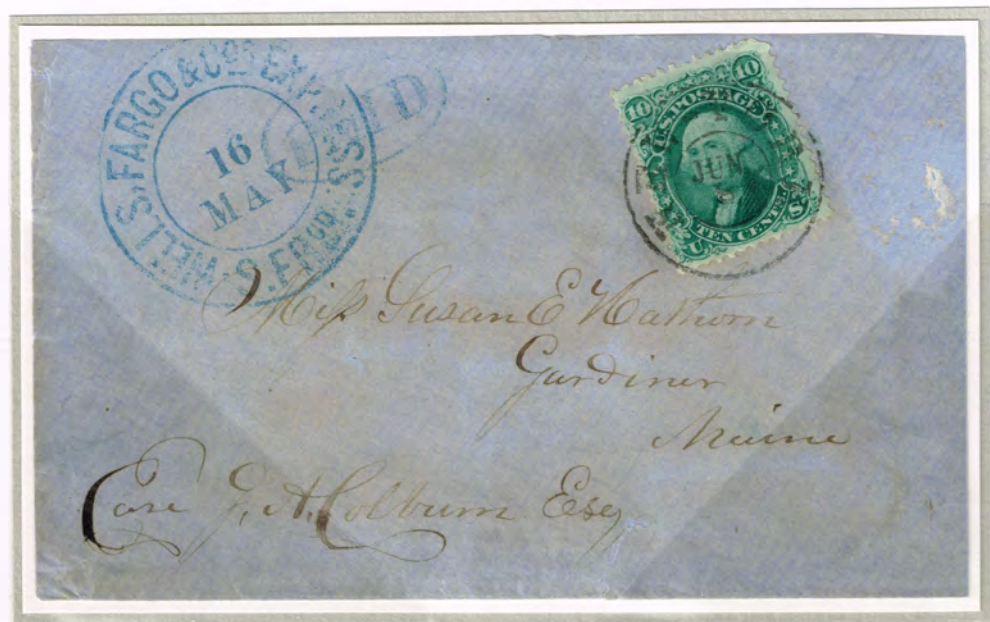 WELLS, FARGO & CO'S EXPRESS. S. FR'CO.
16
MAY
PAID
10 10
U.S. POSTAGE
JUN
U.S. TEN CENTS
Miss Susan E Hathorn
Gardiner
Maine
Care G. A. Colburn Esq